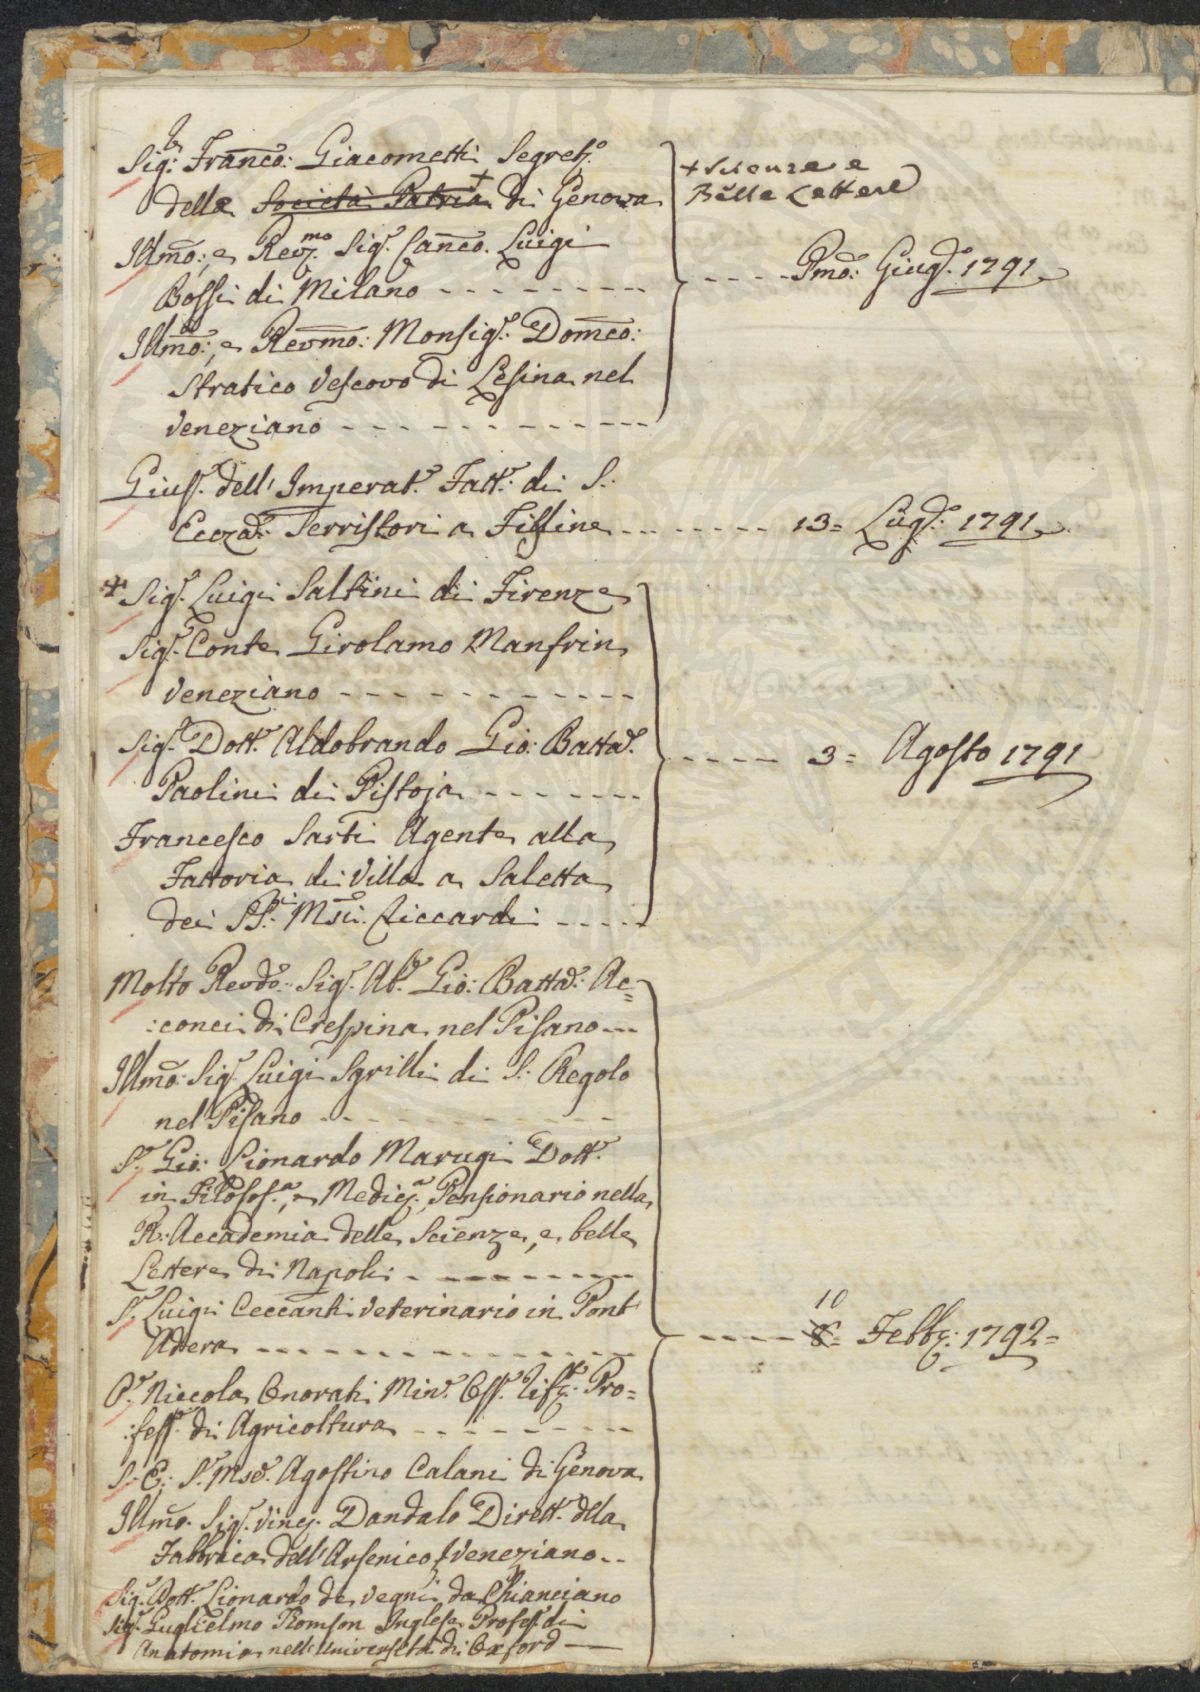 Sig.r Franco: Giacometti Segret.o
delle Società Patria + di Genova
+ Scienze e
Belle Lettere
Illmo:, e Rev.mo Sig.r Canco. Luigi
Bossi di Milano - - - - - - - -
- - - - - Pmo: Giug.o 1791
Illmo:, e Revmo: Monsig.r Domco:
Stratico Vescovo di Lesina nel
Veneziano - - - - - - - - - - -
Gius.e dell' Imperat.e Fatt.e di S.
Eccza: Serristori a Filline - - - - - - - - - 13= Lug.o 1791
+ Sig.r Luigi Saltini di Firenze
Sig.r Conte Girolamo Manfrin
Veneziano - - - - - - - - - - -
Sig.r Dott.e Aldobrando Gio: Batta.
Paolini di Pistoja - - - - - - -
- - - - - 3= Agosto 1791
Francesco Sarti Agente alla
Fattoria di Villa a Saletta
dei SS.ri Msi. Riccardi - - - - -
Molto Revdo: Sig.r Ab.e Gio: Batta: Ac=
:conci di Crespina nel Pisano - - -
Illmo: Sig.r Luigi Sgrilli di S: Regolo
nel Pisano - - - - - - - - - -
S.r Gio: Lionardo Marugi Dott.e
in Filosof.a, e Medic.a, Pensionario nella
R: Accademia delle Scienze, e belle
Lettere di Napoli - - - - - - - - -
S.r Luigi Ceccanti Veterinario in Pont'
Adera - - - - - - - - - - - - -
- - - - - 8= 10 Febb.o: 1792=
P.r Niccola Onorati Min.e Oss. Prof=
:fess.e di Agricoltura - - - - - - - - -
S. E: S.r Mse. Agostino Calani di Genova
Illmo. Sig.r Vinc. Dandalo Dirett.e della
Fabbrica dell' Arsenico Veneziano - -
Sig.r Dott.e Lionardo de Vegni da Chianciano
Sig.r Guglielmo Tomson Inglese Profess. di
Anatomia nell' Università di Oxford —